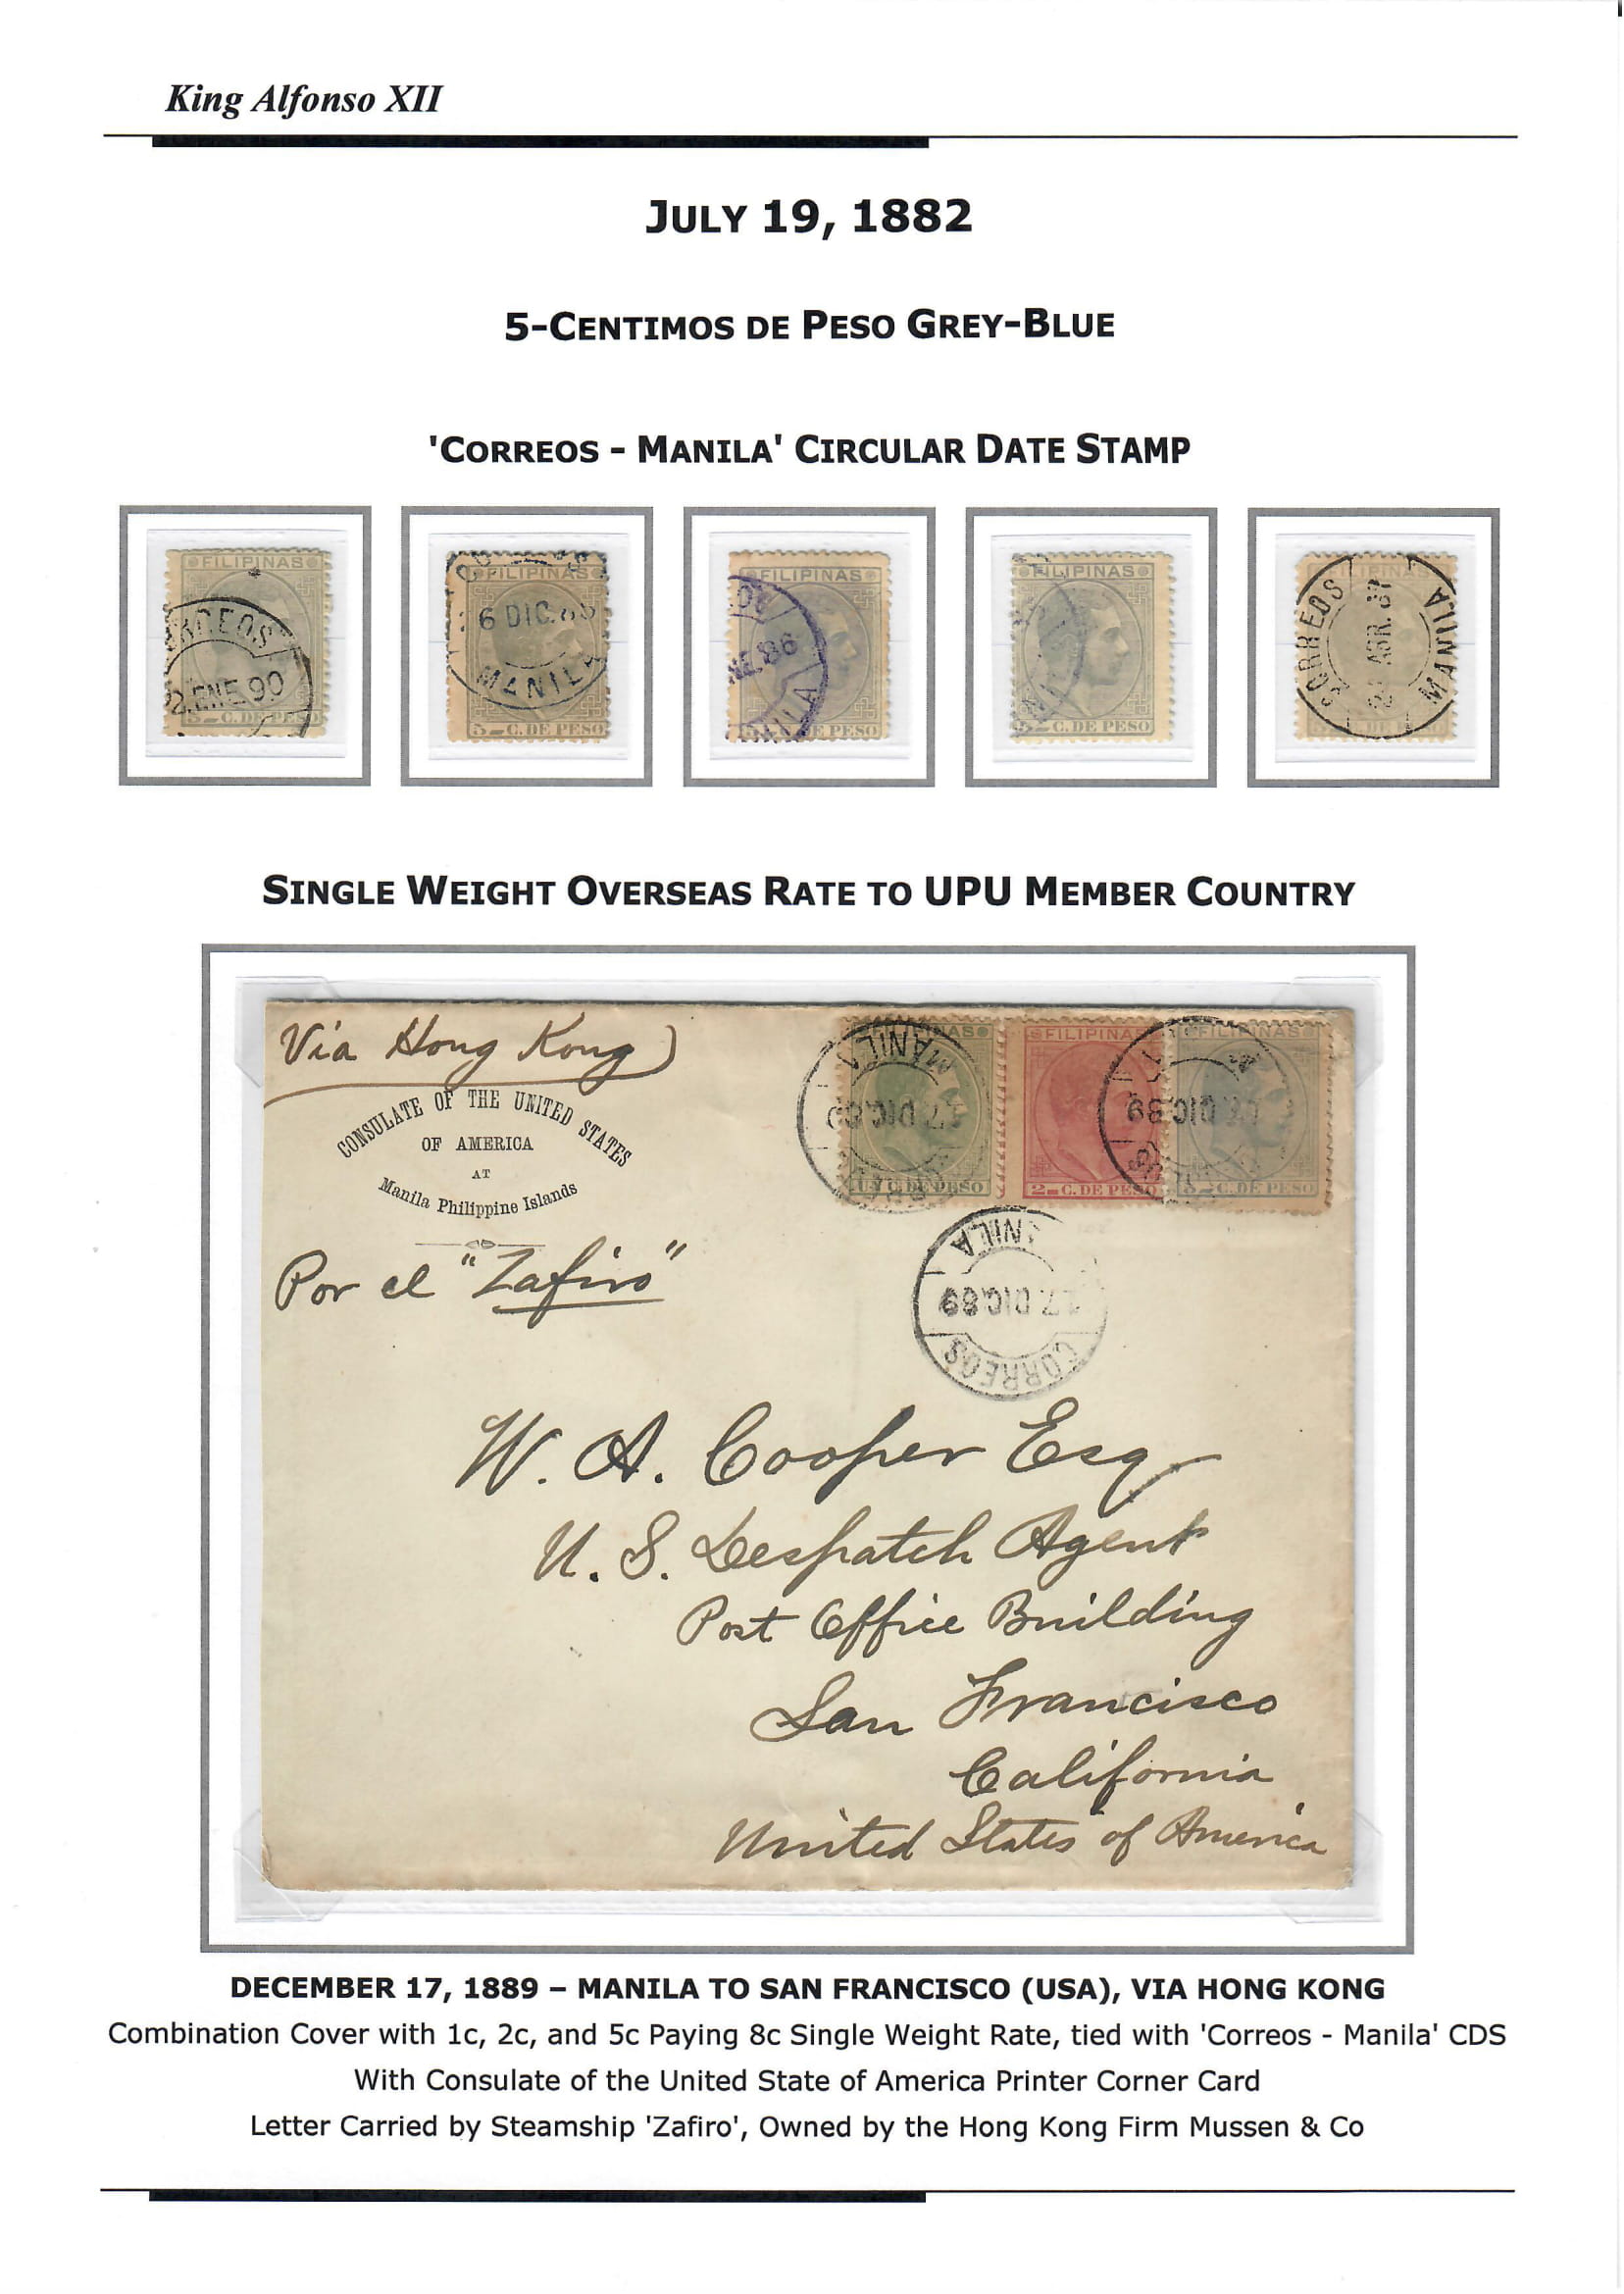 King Alfonso XII
JULY 19, 1882
5-CENTIMOS DE PESO GREY-BLUE
'CORREOS - MANILA' CIRCULAR DATE STAMP
FILIPINAS
ENE.90
C. DE PESO
FILIPINAS
6 DIC.
MANILA
5 C. DE PESO
FILIPINAS
NE.86
DE PESO
FILIPINAS
C. DE PESO
CORREOS
MANILA
SINGLE WEIGHT OVERSEAS RATE TO UPU MEMBER COUNTRY
Via Hong Kong
CONSULATE OF THE UNITED STATES
OF AMERICA
AT
Manila Philippine Islands
Por el "Zafiro"
FILIPINAS
MANILA
17.DIC.89
C. DE PESO
FILIPINAS
2 C. DE PESO
FILIPINAS
DIC.89
C. DE PESO
17.DIC.89
CORREOS
W. A. Cooper Esq
U. S. Despatch Agent
Post Office Building
San Francisco
California
United States of America
DECEMBER 17, 1889 – MANILA TO SAN FRANCISCO (USA), VIA HONG KONG
Combination Cover with 1c, 2c, and 5c Paying 8c Single Weight Rate, tied with 'Correos - Manila' CDS
With Consulate of the United State of America Printer Corner Card
Letter Carried by Steamship 'Zafiro', Owned by the Hong Kong Firm Mussen & Co